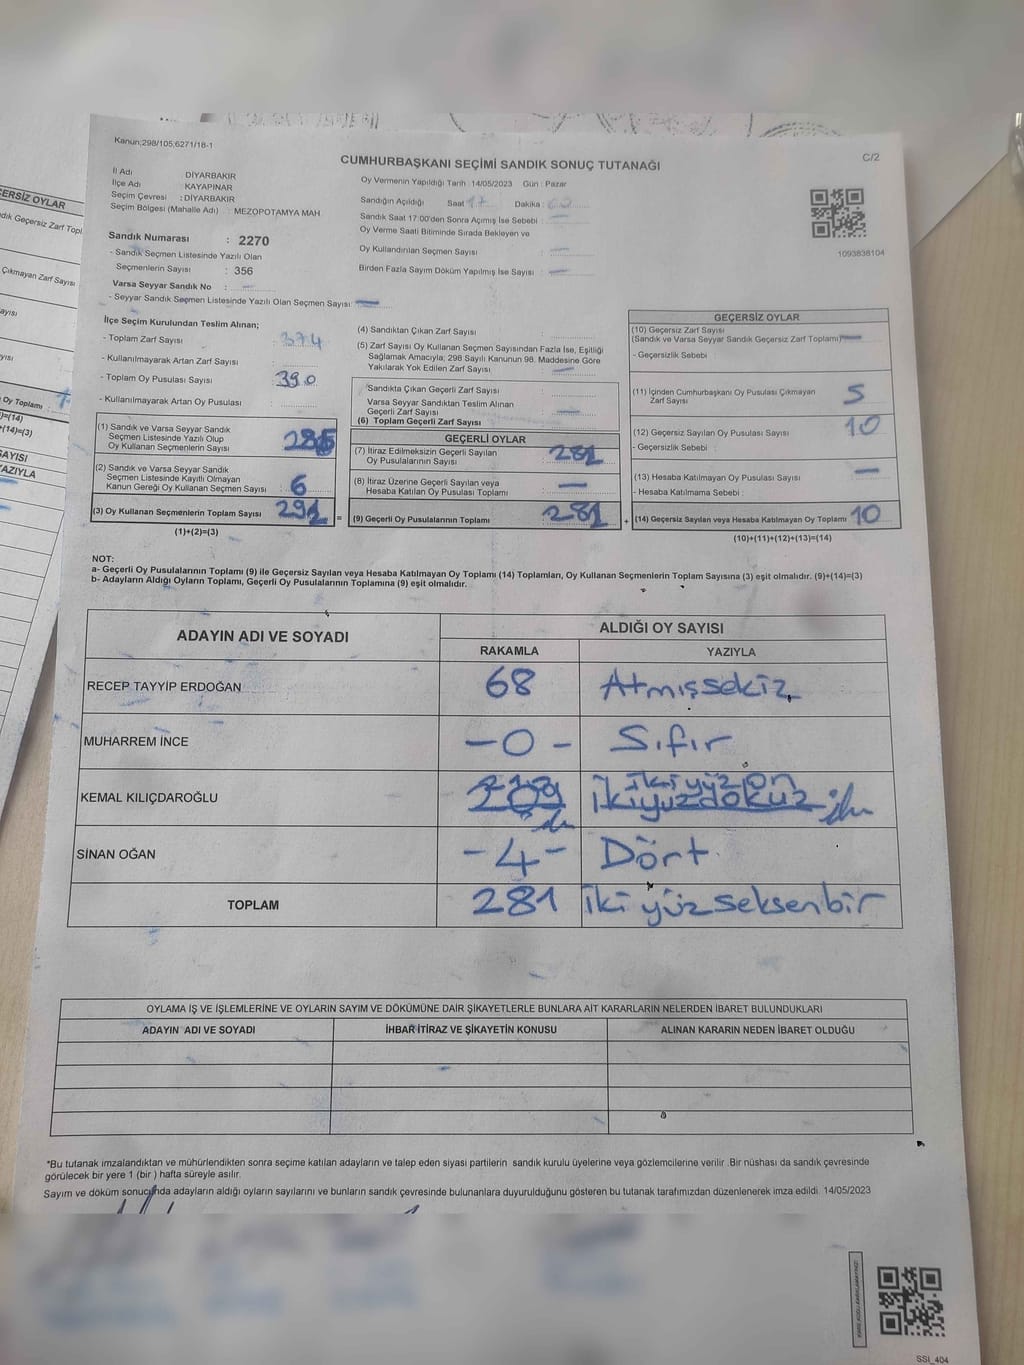 Kanun;298/105,6271/18-1
C/2
CUMHURBAŞKANI SEÇİMİ SANDIK SONUÇ TUTANAĞI
İl Adı DİYARBAKIR
İlçe Adı KAYAPINAR
Seçim Çevresi : DİYARBAKIR
Seçim Bölgesi (Mahalle Adı) : MEZOPOTAMYA MAH.
Sandık Numarası : 2270
- Sandık Seçmen Listesinde Yazılı Olan
Seçmenlerin Sayısı : 356
Varsa Seyyar Sandık No : -
- Seyyar Sandık Seçmen Listesinde Yazılı Olan Seçmen Sayısı: -
Oy Vermenin Yapıldığı Tarih :14/05/2023 Gün : Pazar
Sandığın Açıldığı Saat 17 Dakika :
Sandık Saat 17:00'den Sonra Açımış İse Sebebi : -
Oy Verme Saati Bitiminde Sırada Bekleyen ve
Oy Kullandırılan Seçmen Sayısı : -
Birden Fazla Sayım Döküm Yapılmış İse Sayısı : -
1093838104
İlçe Seçim Kurulundan Teslim Alınan;
- Toplam Zarf Sayısı : 374
- Kullanılmayarak Artan Zarf Sayısı :
- Toplam Oy Pusulası Sayısı : 390
- Kullanılmayarak Artan Oy Pusulası :
(1) Sandık ve Varsa Seyyar Sandık
Seçmen Listesinde Yazılı Olup
Oy Kullanan Seçmenlerin Sayısı : 285
(2) Sandık ve Varsa Seyyar Sandık
Seçmen Listesinde Kayıtlı Olmayan
Kanun Gereği Oy Kullanan Seçmen Sayısı : 6
(3) Oy Kullanan Seçmenlerin Toplam Sayısı : 291
(1)+(2)=(3)
(4) Sandıktan Çıkan Zarf Sayısı :
(5) Zarf Sayısı Oy Kullanan Seçmen Sayısından Fazla İse, Eşitliği
Sağlamak Amacıyla; 298 Sayılı Kanunun 98. Maddesine Göre
Yakılarak Yok Edilen Zarf Sayısı : -
Sandıkta Çıkan Geçerli Zarf Sayısı
Varsa Seyyar Sandıktan Teslim Alınan
Geçerli Zarf Sayısı : -
(6) Toplam Geçerli Zarf Sayısı
GEÇERLİ OYLAR
(7) İtiraz Edilmeksizin Geçerli Sayılan
Oy Pusulalarının Sayısı : 281
(8) İtiraz Üzerine Geçerli Sayılan veya
Hesaba Katılan Oy Pusulası Toplamı : -
= (9) Geçerli Oy Pusulalarının Toplamı : 281 +
GEÇERSİZ OYLAR
(10) Geçersiz Zarf Sayısı
(Sandık ve Varsa Seyyar Sandık Geçersiz Zarf Toplamı) -
- Geçersizlik Sebebi :
(11) İçinden Cumhurbaşkanı Oy Pusulası Çıkmayan
Zarf Sayısı : 5
(12) Geçersiz Sayılan Oy Pusulası Sayısı : 10
- Geçersizlik Sebebi :
(13) Hesaba Katılmayan Oy Pusulası Sayısı : -
- Hesaba Katılmama Sebebi :
(14) Geçersiz Sayılan veya Hesaba Katılmayan Oy Toplamı : 10
(10)+(11)+(12)+(13)=(14)
NOT:
a- Geçerli Oy Pusulalarının Toplamı (9) ile Geçersiz Sayılan veya Hesaba Katılmayan Oy Toplamı (14) Toplamları, Oy Kullanan Seçmenlerin Toplam Sayısına (3) eşit olmalıdır. (9)+(14)=(3)
b- Adayların Aldığı Oyların Toplamı, Geçerli Oy Pusulalarının Toplamına (9) eşit olmalıdır.
ADAYIN ADI VE SOYADI ALDIĞI OY SAYISI
RAKAMLA YAZIYLA
RECEP TAYYİP ERDOĞAN 68 Atmışsekiz
MUHARREM İNCE -0- Sıfır
KEMAL KILIÇDAROĞLU 209 ikiyüzon
ikiyüzdokuz
SİNAN OĞAN -4- Dört
TOPLAM 281 iki yüz seksenbir
OYLAMA İŞ VE İŞLEMLERİNE VE OYLARIN SAYIM VE DÖKÜMÜNE DAİR ŞİKAYETLERLE BUNLARA AİT KARARLARIN NELERDEN İBARET BULUNDUKLARI
ADAYIN ADI VE SOYADI İHBAR İTİRAZ VE ŞİKAYETİN KONUSU ALINAN KARARIN NEDEN İBARET OLDUĞU
*Bu tutanak imzalandıktan ve mühürlendikten sonra seçime katılan adayların ve talep eden siyasi partilerin sandık kurulu üyelerine veya gözlemcilerine verilir .Bir nüshası da sandık çevresinde
görülecek bir yere 1 (bir ) hafta süreyle asılır.
Sayım ve döküm sonucunda adayların aldığı oyların sayılarını ve bunların sandık çevresinde bulunanlara duyurulduğunu gösteren bu tutanak tarafımızdan düzenlenerek imza edildi. 14/05/2023
SSI_404